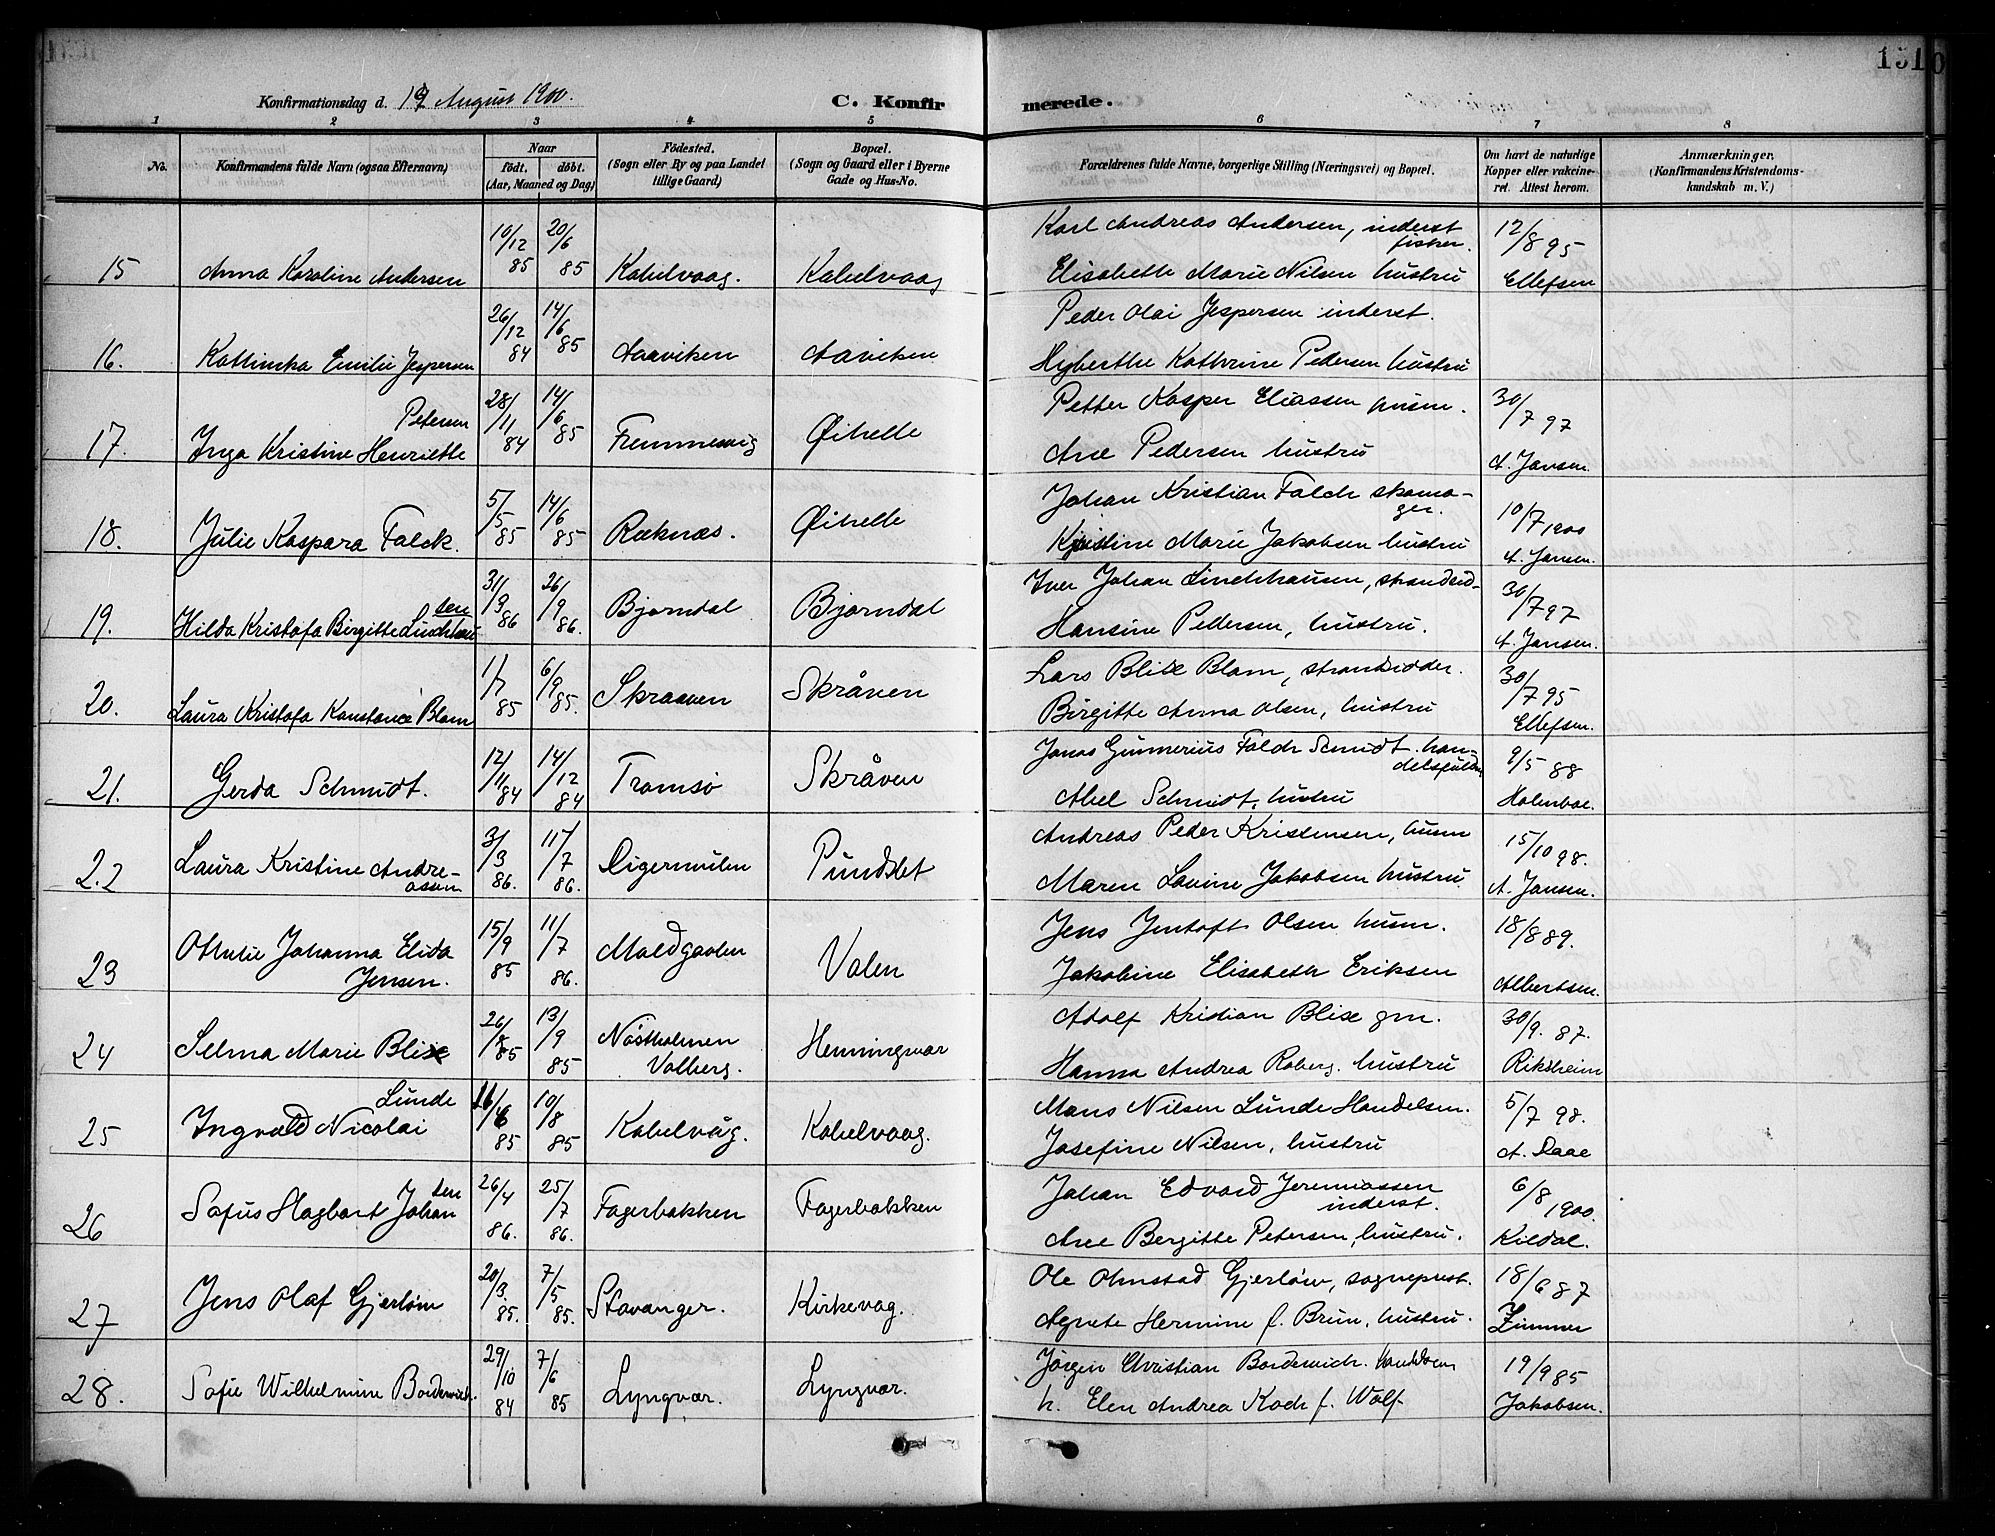 151
Konfirmationsdag d. 19 August 1900.
C. Konfirmerede.
1 2 3 4 5 6 7 8
No.
Konfirmandens fulde Navn (ogsaa Efternavn)
Naar
født. døbt.
(Aar, Maaned og Dag)
Fødested.
(Sogn eller By og paa Landet
tillige Gaard)
Bopæl.
(Sogn og Gaard eller i Byerne
Gade og Hus-No.
Forældrenes fulde Navne, borgerlige Stilling (Næringsvei) og Bopæl.
Om havt de naturlige
Kopper eller vakcine-
ret. Attest herom.
Anmærkninger.
(Konfirmandens Kristendoms-
kundskab m. V.)
15 Anna Karoline Andersen 10/12 85 20/6 85 Kabelvaag. Kabelvaag
Karl Andreas Andersen, inderst
fisker.
Elisabeth Marie Nilsen hustru
12/8 95
Ellefsen
16. Kattinka Emilie Jespersen 26/12 84 14/6 85 Aaviken Aaviken
Peder Olai Jespersen inderst.
Hyberthe Kathrine Pedersen hustru
17. Petersen
Inga Kristine Henriette 28/11 84 14/6 85 Fremmesvig Øihelle
Petter Kasper Eliassen husm.
Ane Pedersen hustru
30/7 97
A. Jansen.
18. Julie Kaspara Falck. 5/5 85 14/6 85 Reknæs. Øihelle
Johan Kristian Falch skoma-
ger.
Kristine Marie Jakobsen hustru
10/7 1900
A. Jansen.
19. Hilda Kristofa Birgitte Linchhausen 31/3 86 26/9 86. Bjorndal Bjorndal
Iver Johan Linchhausen, strandsid-
Hansine Pedersen, hustru.
30/7 97
A. Jansen.
20. Laura Kristofa Konstance Blom 1/7 85 6/9 85. Skraaven Skråven
Lars Blix Blom, strandsidder.
Birgitte Anna Olsen, hustru
30/7 95
Ellefsen.
21. Gerda Schmidt. 12/11 84 14/12 84 Tromsø Skråven
Jonas Gunnerius Falch Scmidt. han-
delsfuldm
Abel Schmidt, hustru
9/5 88
Holmboe.
22 Laura Kristine Andre-
assen 3/3 86. 11/7 86. Digermulen Pundslet
Andreas Peder Kristensen, husm
Maren Lovine Jakobsen hustru
15/10 98.
A. Jansen.
23 Othelie Johanna Elida
Jensen. 15/9 85 11/7 86. Moldgavlen Valen
Jens Jentoft Olsen husm.
Jakobine Elisabeth Eriksen
18/8 89.
Albertsen.
24 Selma Marie Blix 26/8 85 13/9 85 Nøstholmen
Valberg. Henningvær
Adolf Kristian Blix gm.
Hanna Andrea Roberg. hustru
30/9. 87.
Riksheim
25 Lunde
Ingvald Nicolai 16/6 85 10/8 85 Kabelvåg. Kabelvaag.
Mons Nilsen Lunde Handelsm.
Josefine Nilsen, hustru
5/7 98.
A. Daae
26 Sofus Hagbart Johansen 26/4 86. 25/7 86. Fagerbakken Fagerbakken
Johan Edvard Jeremiassen
inderst.
Ane Bergitte Petersen, hustru.
6/8 1900.
Kildal.
27 Jens Olaf Gjerløw 20/3. 85. 7/5 85. Stavanger. Kirkevåg.
Ole Olmstad Gjerløw, sogneprest.
Agnete Hermine f. Brun, hustru.
18/6 87
Zimmer
28. Sofie Wilhelmine Bordewich. 29/10 84 7/6 85 Lyngvær. Lyngvær.
Jørgen Christian Bordewich. Handelsm
h. Elen Andrea Koch f. Wolf
19/9 85
Jakobsen.